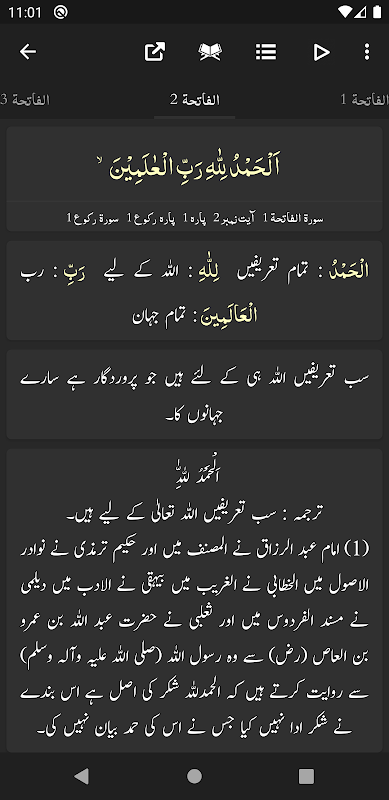 11:01
الفاتحة 1
الفاتحة 2
الفاتحة 3
اَلْحَمْدُ لِلّٰهِ رَبِّ الْعٰلَمِيْنَ ۙ
سورۃ الفاتحة 1 آیت نمبر 2 پارہ 1 پارہ رکوع 1 سورۃ رکوع 1
الْحَمْدُ : تمام تعریفیں لِلّٰهِ : اللہ کے لیے رَبِّ : رب
الْعَالَمِيْنَ : تمام جہان
سب تعریفیں اللہ ہی کے لئے ہیں جو پروردگار ہے سارے
جہانوں کا۔
اَلْحَمْدُ لِلّٰهِ
ترجمہ : سب تعریفیں اللہ تعالٰی کے لیے ہیں۔
(1) امام عبد الرزاق نے المصنف میں اور حکیم ترمذی نے نوادر
الاصول میں الخطابی نے الغریب میں بیہقی نے الادب میں دیلمی
نے مسند الفردوس میں اور ثعلبی نے حضرت عبد اللہ بن عمرو
بن العاص (رض) سے وہ رسول اللہ (صلی اللہ علیہ وآلہ وسلم)
سے روایت کرتے ہیں کہ الحمدللہ شکر کی اصل ہے اس بندے
نے شکر ادا نہیں کیا جس نے اس کی حمد بیان نہیں کی۔